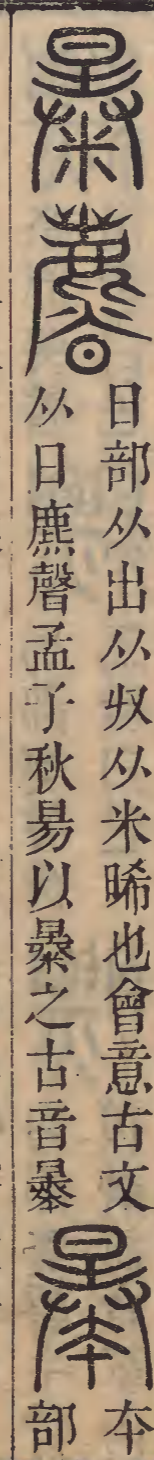 㬥𣋴
日部从出从𠬞从米晞也會意古文
从日麃聲孟子秋昜以㬥之古音暴
㬧
夲
部